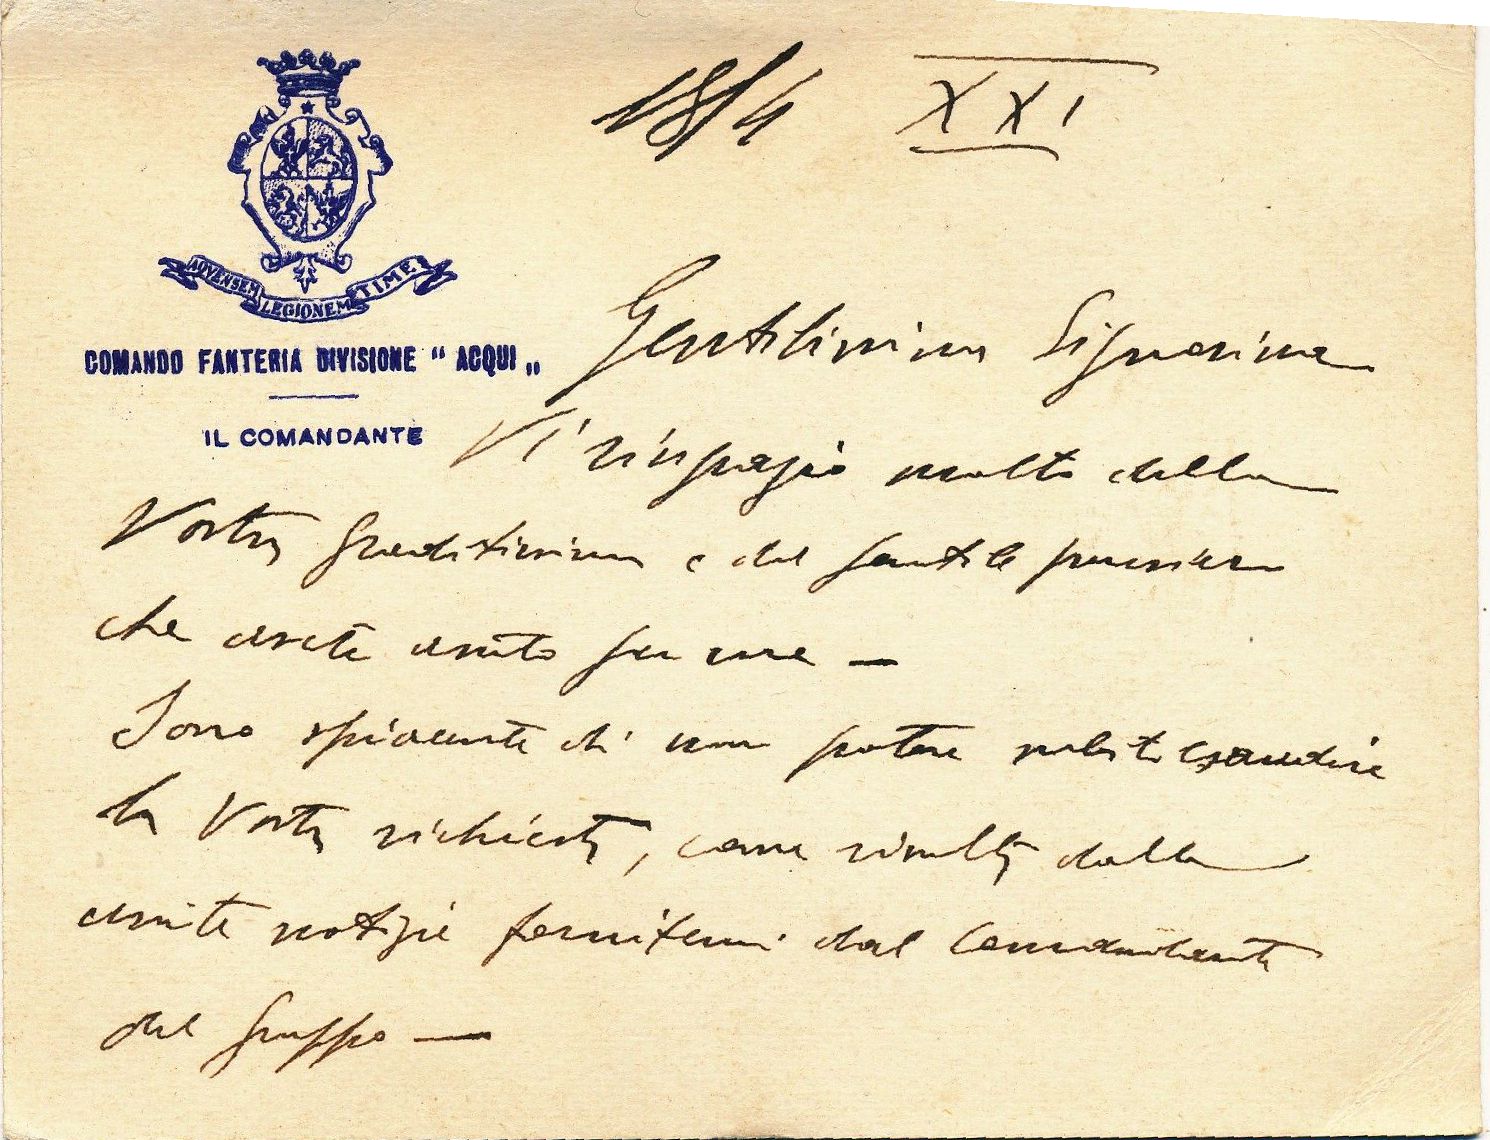 18/4 XXI
AQVENSEM LEGIONEM TIME!
COMANDO FANTERIA DIVISIONE " ACQUI „
IL COMANDANTE
Gentilissima Signorina
Vi ringrazio molto della
Vostra graditissima e del gentile pensiero
che avete avuto per me —
Sono spiacente di non potere subito esaudire
la Vostra richiesta, come risulta dalle
unite notizie fornitemi dal Comandante
del gruppo —